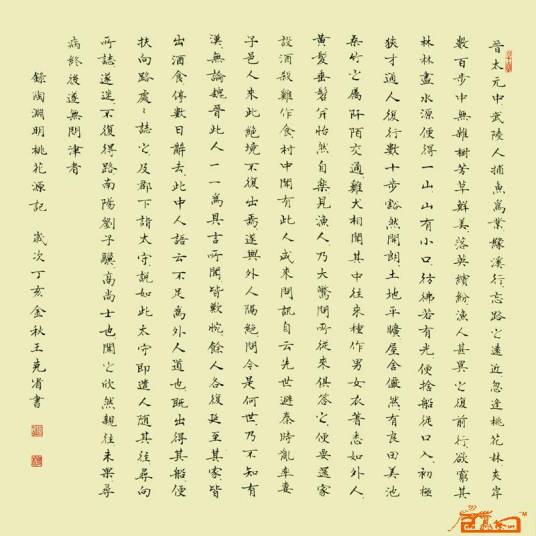 晉太元中武陵人捕魚為業緣溪行忘路之遠近忽逢桃花林夾岸
數百步中無雜樹芳草鮮美落英繽紛漁人甚異之復前行欲窮其
林林盡水源便得一山山有小口彷彿若有光便捨船從口入初極
狹才通人復行數十步豁然開朗土地平曠屋舍儼然有良田美池
桑竹之屬阡陌交通雞犬相聞其中往來種作男女衣著悉如外人
黃髮垂髫并怡然自樂見漁人乃大驚問所從來俱答之便要還家
設酒殺雞作食村中聞有此人咸來問訊自云先世避秦時亂率妻
子邑人來此絕境不復出焉遂與外人隔絕問今是何世乃不知有
漢無論魏晉此人一一為具言所聞皆歎惋餘人各復延至其家皆
出酒食停數日辭去此中人語云不足為外人道也既出得其船便
扶向路處處誌之及郡下詣太守說如此太守即遣人隨其往尋向
所誌遂迷不復得路南陽劉子驥高尚士也聞之欣然親往未果尋
病終後遂無問津者
錄陶淵明桃花源記 歲次丁亥金秋王克省書